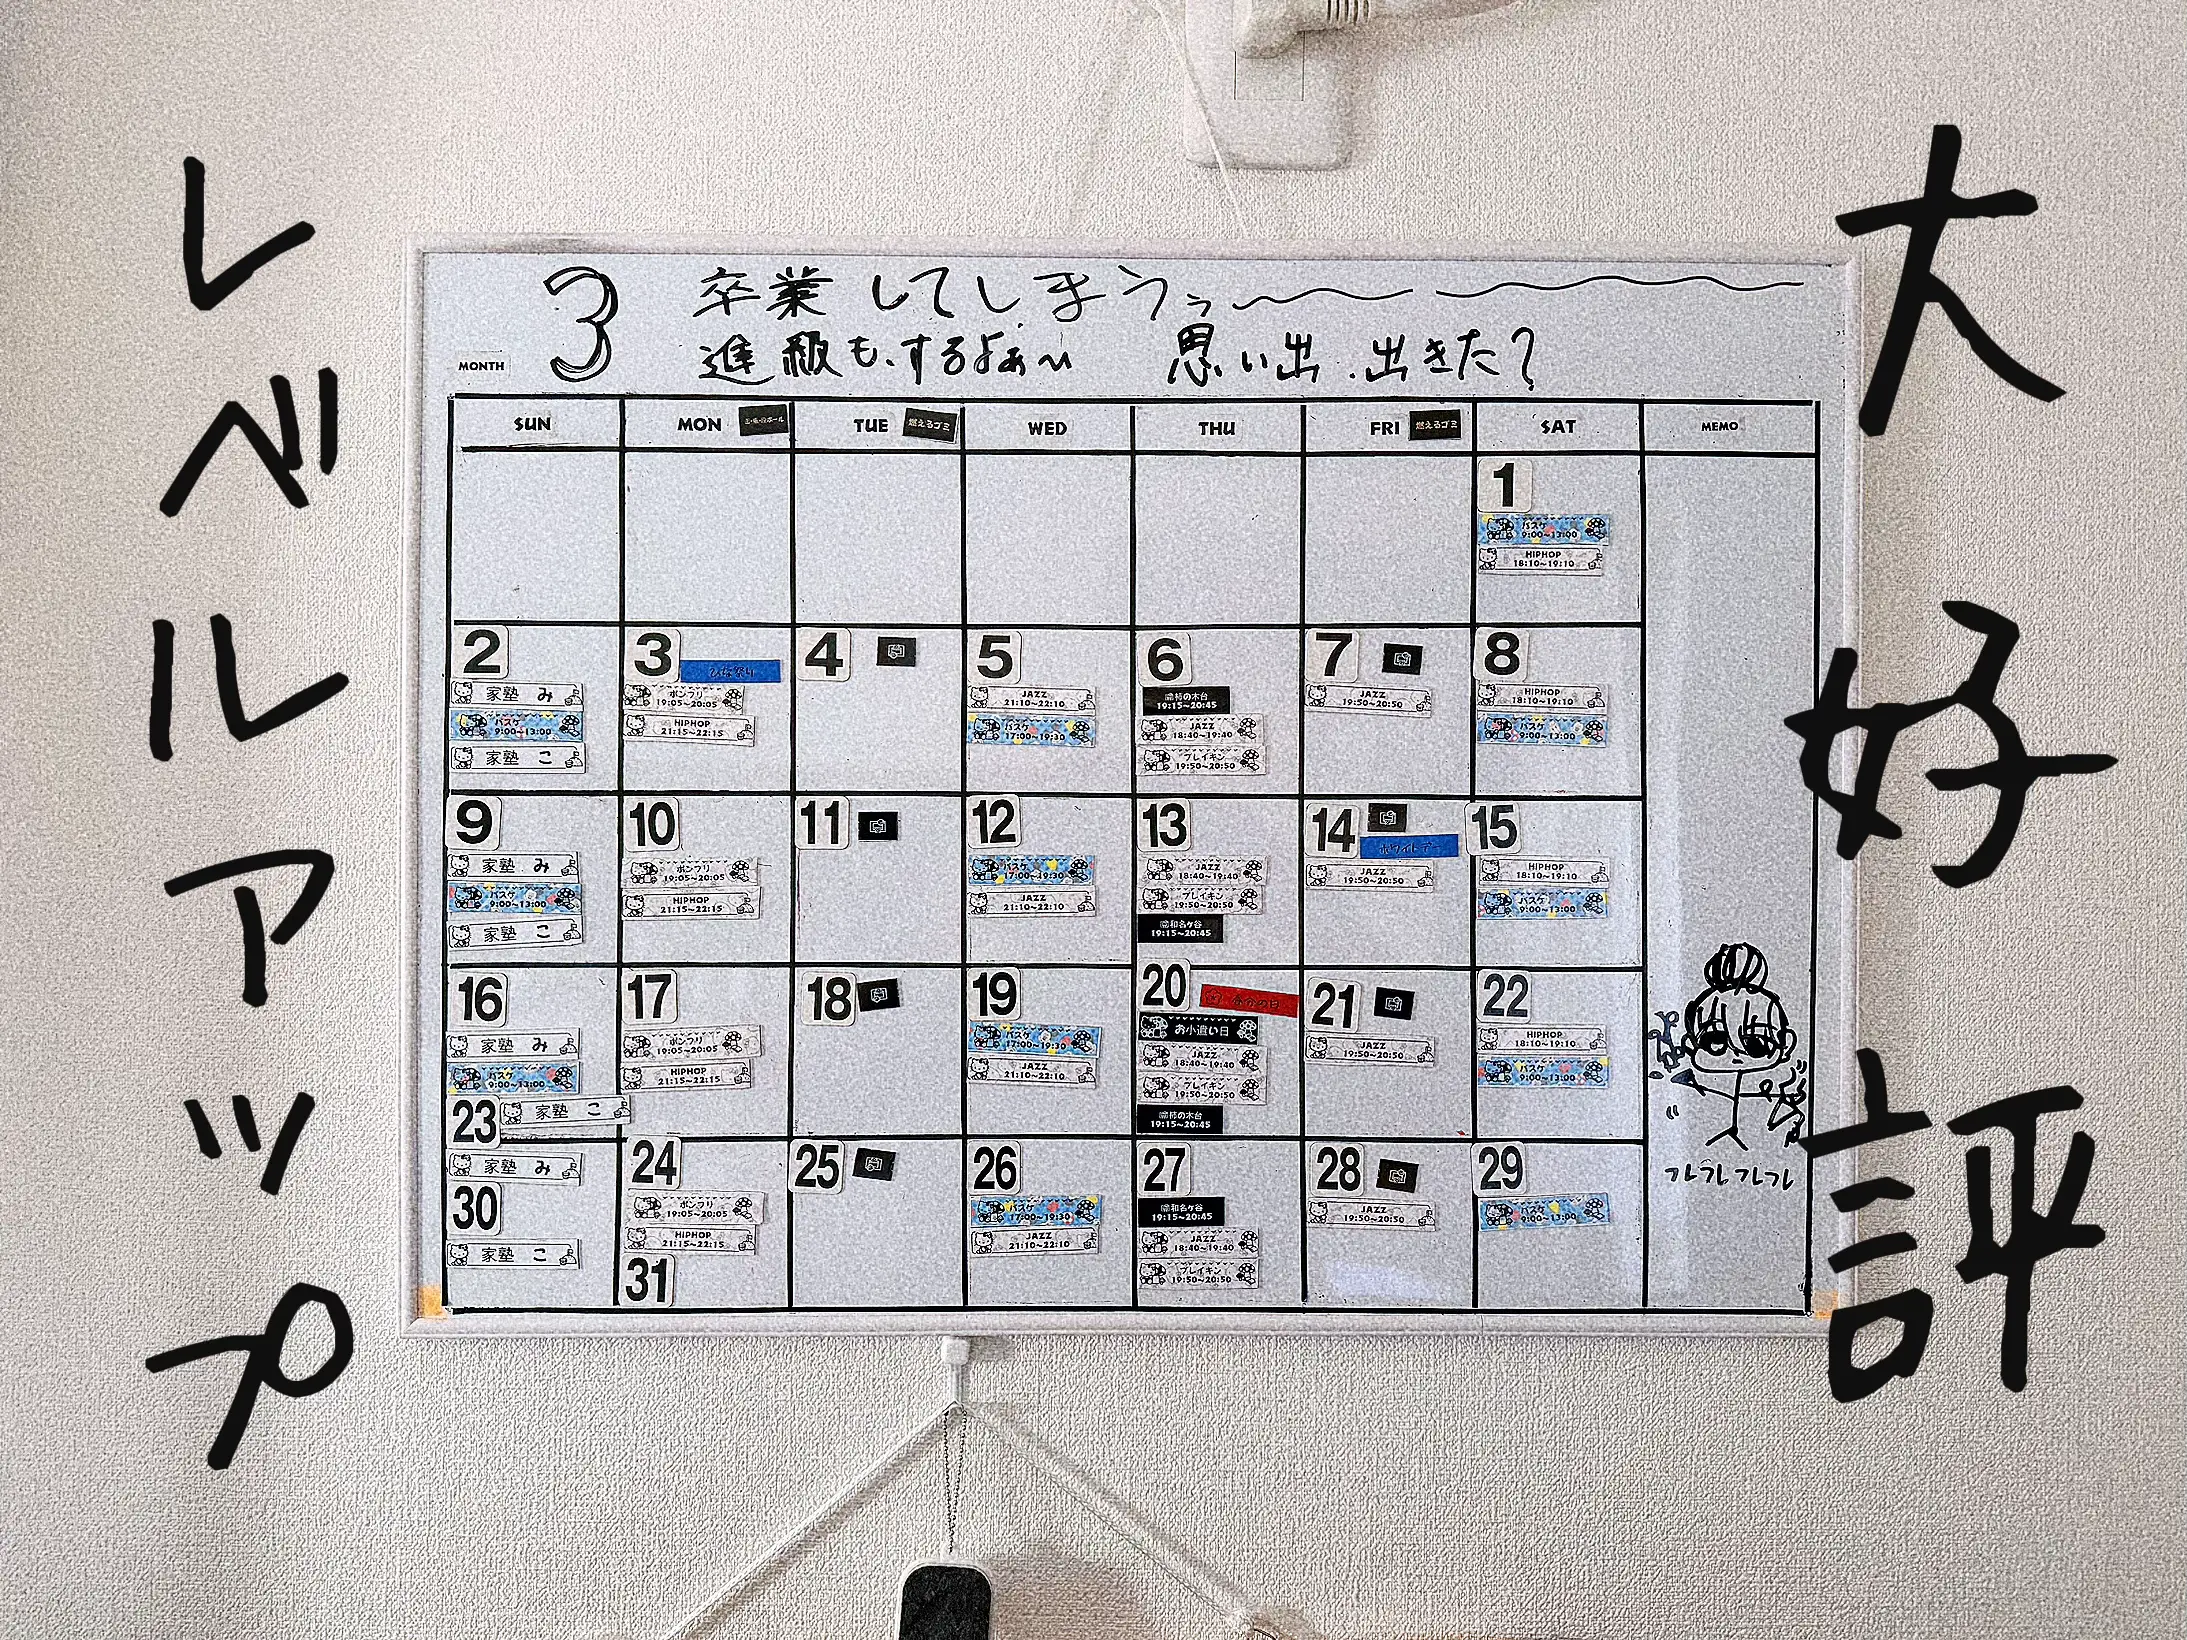 大好評
レベルアップ
3 卒業してしまうぅ〜〜
MONTH 進級も、するよぉ〜 思い出、出きた?
SUN MON TUE 燃えるゴミ WED THU FRI 燃えるゴミ SAT MEMO
1
バスケ
9:00~13:00
HIPHOP
18:10~19:10
2
家塾 み
バスケ
9:00~13:00
家塾 こ
3 ひな祭り
ポンフリ
19:05~20:05
HIPHOP
21:15~22:15
4
5
JAZZ
21:10~22:10
バスケ
17:00~19:30
6
柿の木台
19:15~20:45
JAZZ
18:40~19:40
ブレイキン
19:50~20:50
7
JAZZ
19:50~20:50
8
HIPHOP
18:10~19:10
バスケ
9:00~13:00
9
家塾 み
バスケ
9:00~13:00
家塾 こ
10
ポンフリ
19:05~20:05
HIPHOP
21:15~22:15
11
12
バスケ
17:00~19:30
JAZZ
21:10~22:10
13
JAZZ
18:40~19:40
ブレイキン
19:50~20:50
和名ヶ谷
19:15~20:45
14
ホワイトデー
JAZZ
19:50~20:50
15
HIPHOP
18:10~19:10
バスケ
9:00~13:00
16
家塾 み
バスケ
9:00~13:00
家塾 こ
17
ポンフリ
19:05~20:05
HIPHOP
21:15~22:15
18
19
バスケ
17:00~19:30
JAZZ
21:10~22:10
20 春分の日
お小遣い日
JAZZ
18:40~19:40
ブレイキン
19:50~20:50
柿の木台
19:15~20:45
21
JAZZ
19:50~20:50
22
HIPHOP
18:10~19:10
バスケ
9:00~13:00
23
家塾 み
24
ポンフリ
19:05~20:05
HIPHOP
21:15~22:15
25
26
バスケ
17:00~19:30
JAZZ
21:10~22:10
27
和名ヶ谷
19:15~20:45
JAZZ
18:40~19:40
ブレイキン
19:50~20:50
28
JAZZ
19:50~20:50
29
バスケ
9:00~13:00
30
家塾 こ
31
フレフレフレフレ